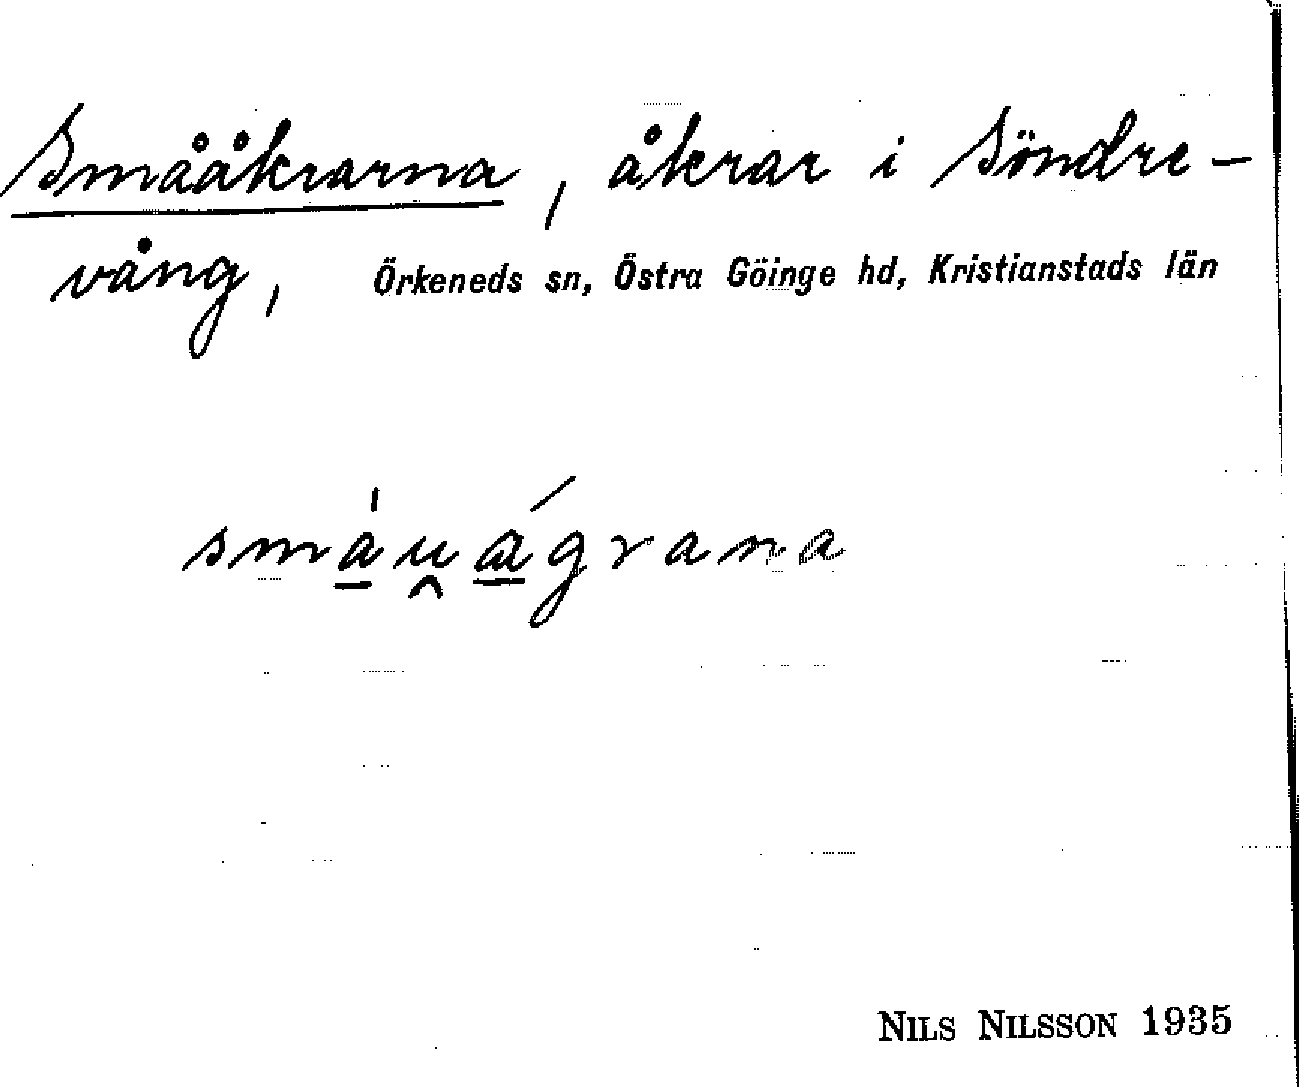 Smååkrarna, åkrar i Söndre-
vång, Örkeneds sn, Östra Göinge hd, Kristianstads län
smȧ̱u̯á̱grana
NILS NILSSON 1935